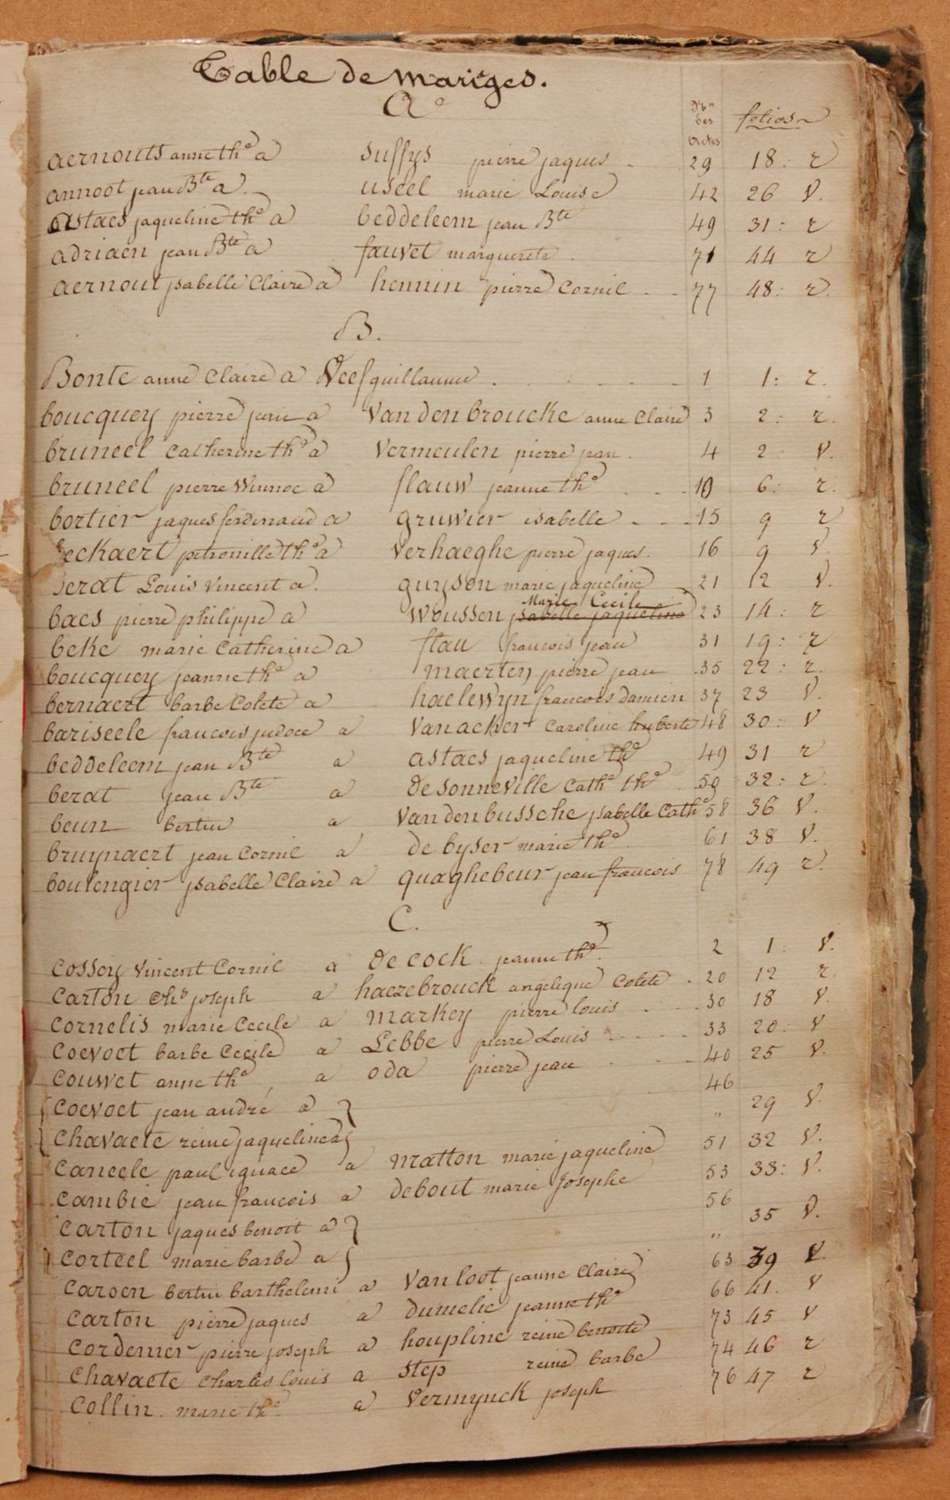 Table de mariges.
A
N.os des actes folios
aernouts anne th.e a suffys pierre jaques 29 18: r
annoot jean B.te a uscel marie Louise 42 26 v.
astaes jaqueline th.e a beddeleem jean B.te 49 31: r
adriaen jean B.te a fauvet marguerite 71 44 r
aernout ysabelle Claire a hennin pierre Cornil 77 48: r.
B.
Bonte anne Claire a Neef guillaume 1 1: r.
boucquey pierre jean a Vandenbroucke anne Claire 3 2: r.
bruneel Catherine th.e a Vermeulen pierre jean. 4 2 v.
bruneel pierre Winnoc a flauw jeanne th.e 10 6: r.
bortier jaques ferdinand a gruwier isabelle 15 9 r
beckaert petronille th.e a Verhaeghe pierre jaques. 16 9 v.
berat Louis Vincent a. guyson marie jaqueline 21 12 v.
Marie Cecile
baes pierre philippe a woussen ysabelle jaqueline 23 14: r
beke marie Catherine a flau francois jean 31 19: r
boucquey jeanne th.e a maerten pierre jean 35 22: r.
bernaert barbe Colete a haelewyn francois damien 37 23 v.
bariseele francois judoce a Vanacker Caroline huberte 48 30: v
beddeleem jean B.te a astaes jaqueline th.e 49 31 r
berat jean B.te a desonneville Cath.e th.e 50 32: r.
beun bertin a Vandenbussche ysabelle Cath.e 58 36 v.
bruynaert jean Cornil a de byser marie th.e 61 38 v.
boulengier ysabelle Claire a quaghebeur jean francois 78 49 r.
C.
Cossey Vincent Cornil a de Cock jeanne th.e 2 1: v.
Carton Ch.s joseph a haezebrouck angelique Colete 20 12 r.
Cornelis marie Cecile a markey pierre louis 30 18 v.
Coevoet barbe Cecile a Lebbe pierre Louis 33 20: v
Couwet anne th.e a oda pierre jean 40 25 v.
Coevoet jean andré a } 46
Chavaete reine jaqueline a } „ 29 v.
Caneele paul ignace a matton marie jaqueline 51 32 v.
Cambie jean francois a debout marie Josephe 53 33: v.
Carton jaques benoit a } 56
Corteel marie barbe a } „ 35 v.
Caroen bertin barthelemi a Vanloot jeanne Claire 63 39 v.
Carton pierre jaques a dumelie jeanne th.e 66 41. v
Cordenier pierre joseph a houpline reine benoite 73 45 v
Chavaete Charles louis a Step reine barbe 74 46 r
Collin marie th.e a Vermynck joseph 76 47 r